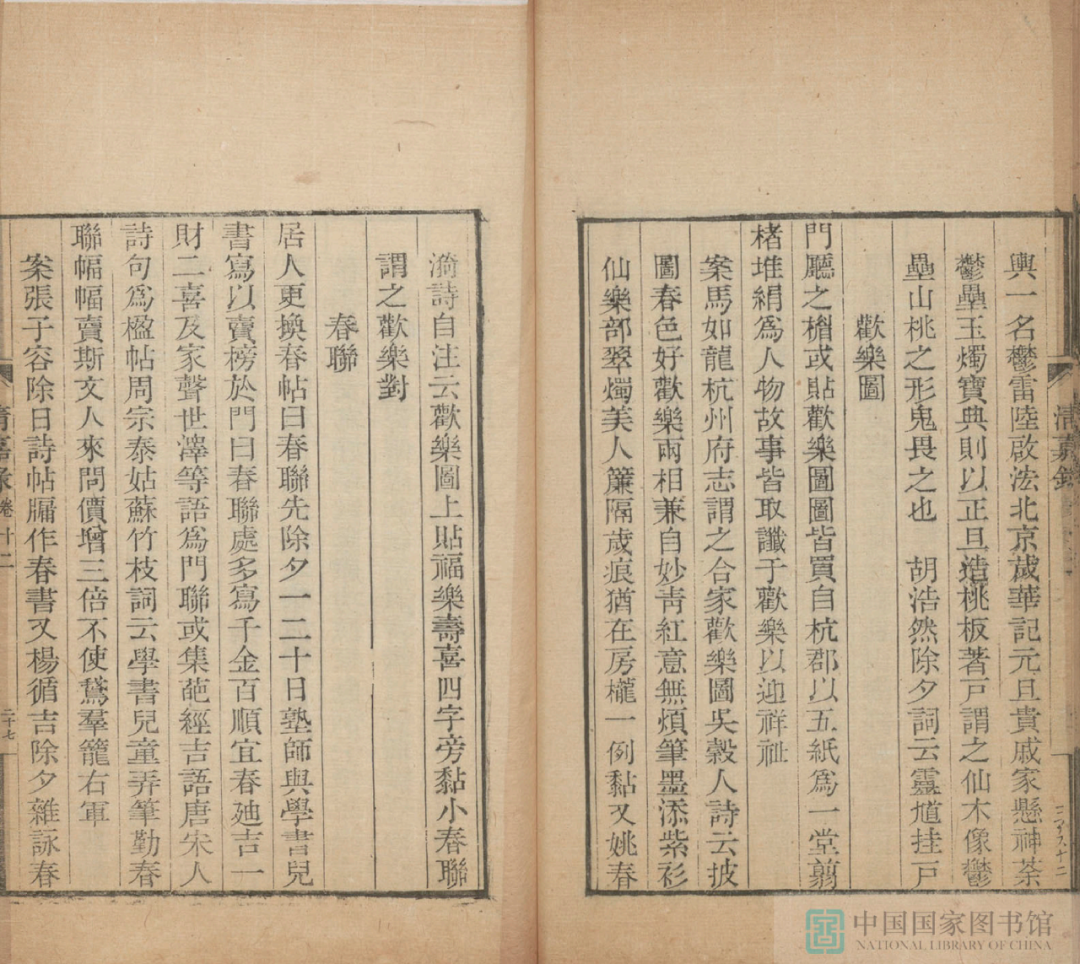 興一名鬱雷陸啟法北京歲華記元旦貴戚家懸神荼
鬱壘玉燭寶典則以正旦造桃板著戸謂之仙木像鬱
壘山桃之形鬼畏之也 胡浩然除夕詞云靈馗挂戸
歡樂圖
門廳之楣或貼歡樂圖圖皆買自杭郡以五紙爲一堂翦
楮堆絹爲人物故事皆取讖于歡樂以迎祥祉
案馬如龍杭州府志謂之合家歡樂圖吳穀人詩云披
圖春色好歡樂兩相兼自妙靑紅意無煩筆墨添紫衫
仙樂部翠燭美人簾隔歲痕猶在房櫳一例黏又姚春
漪詩自注云歡樂圖上貼福樂壽喜四字旁黏小春聯
謂之歡樂對
春聯
居人更換春帖曰春聯先除夕一二十日塾師與學書兒
書寫以賣榜於門曰春聯處多寫千金百順宜春廸吉一
財二喜及家聲世澤等語爲門聯或集葩經吉語唐宋人
詩句爲楹帖周宗泰姑蘇竹枝詞云學書兒童弄筆勤春
聯幅幅賣斯文人來問價增三倍不使鵞羣籠右軍
案張子容除日詩帖牖作春書又楊循吉除夕雜詠春
清嘉錄
清嘉录 卷十二
二十七
中国国家图书馆
NATIONAL LIBRARY OF CHINA